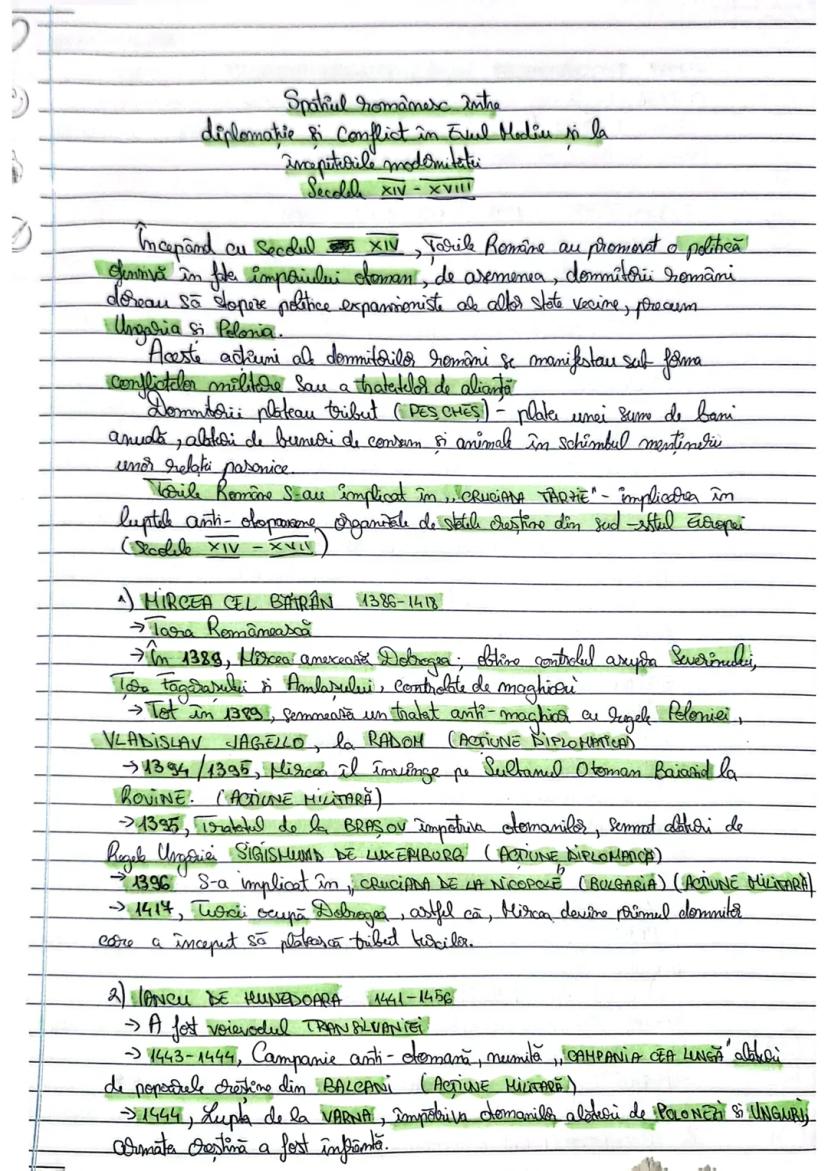 Spațiul românesc între
diplomație și Conflict în Evul Mediu și la
începuturile modernității
Secolele XIV - XVIII
Începând cu Secolul XIV, Țările Române au promovat o politică
ofensivă în fața imperiului otoman, de asemenea, domnitorii români
doreau să stopeze politice expansioniste ale altor state vecine, precum
Ungaria și Polonia.
Aceste acțiuni ale domnitorilor români se manifestau sub forma
conflictelor militare sau a tratatelor de alianță
Domnitorii plateau tribut (PESCHES) - plata unei sume de bani
anuală, alături de bunuri de consum și animale în schimbul menținerii
unor relații pașnice.
Țările Române s-au implicat în „CRUCIADA TÂRZIE" - implicarea în
luptele anti-otomane, organizate de statele creștine din sud-estul Europei
(Secolele XIV - XVII)
1) MIRCEA CEL BĂTRÂN 1386-1418
→ Țara Românească
→ În 1389, Mircea anexează Dobrogea; obține controlul asupra Severinului,
Țara Făgărașului și Amlașului, controlate de maghiari
→ Tot în 1389, semnează un tratat anti-maghiar cu regele Poloniei,
VLADISLAV JAGELLO, la RADOM (ACȚIUNE DIPLOMATICĂ)
→ 1394/1395, Mircea îl învinge pe Sultanul Otoman Baiazid la
ROVINE. (ACȚIUNE MILITARĂ)
→ 1395, Tratatul de la BRAȘOV împotriva otomanilor, semnat alături de
Regele Ungariei SIGISMUND DE LUXEMBURG (ACȚIUNE DIPLOMATICĂ)
→ 1396 S-a implicat în „CRUCIADA DE LA NICOPOLE" (BULGARIA) (ACȚIUNE MILITARĂ)
→ 1417, Turcii ocupă Dobrogea, astfel că, Mircea devine primul domnitor
care a început să plătească tribut turcilor.
2) IANCU DE HUNEDOARA 1441-1456
→ A fost voievodul TRANSILVANIEI
→ 1443-1444, Campanie anti-otomană, numită „CAMPANIA CEA LUNGĂ" alături
de popoarele creștine din BALCANI (ACȚIUNE MILITARĂ)
→ 1444, Lupta de la VARNA, împotriva otomanilor alături de POLONEZI și UNGURI,
armata creștină a fost înfrântă.